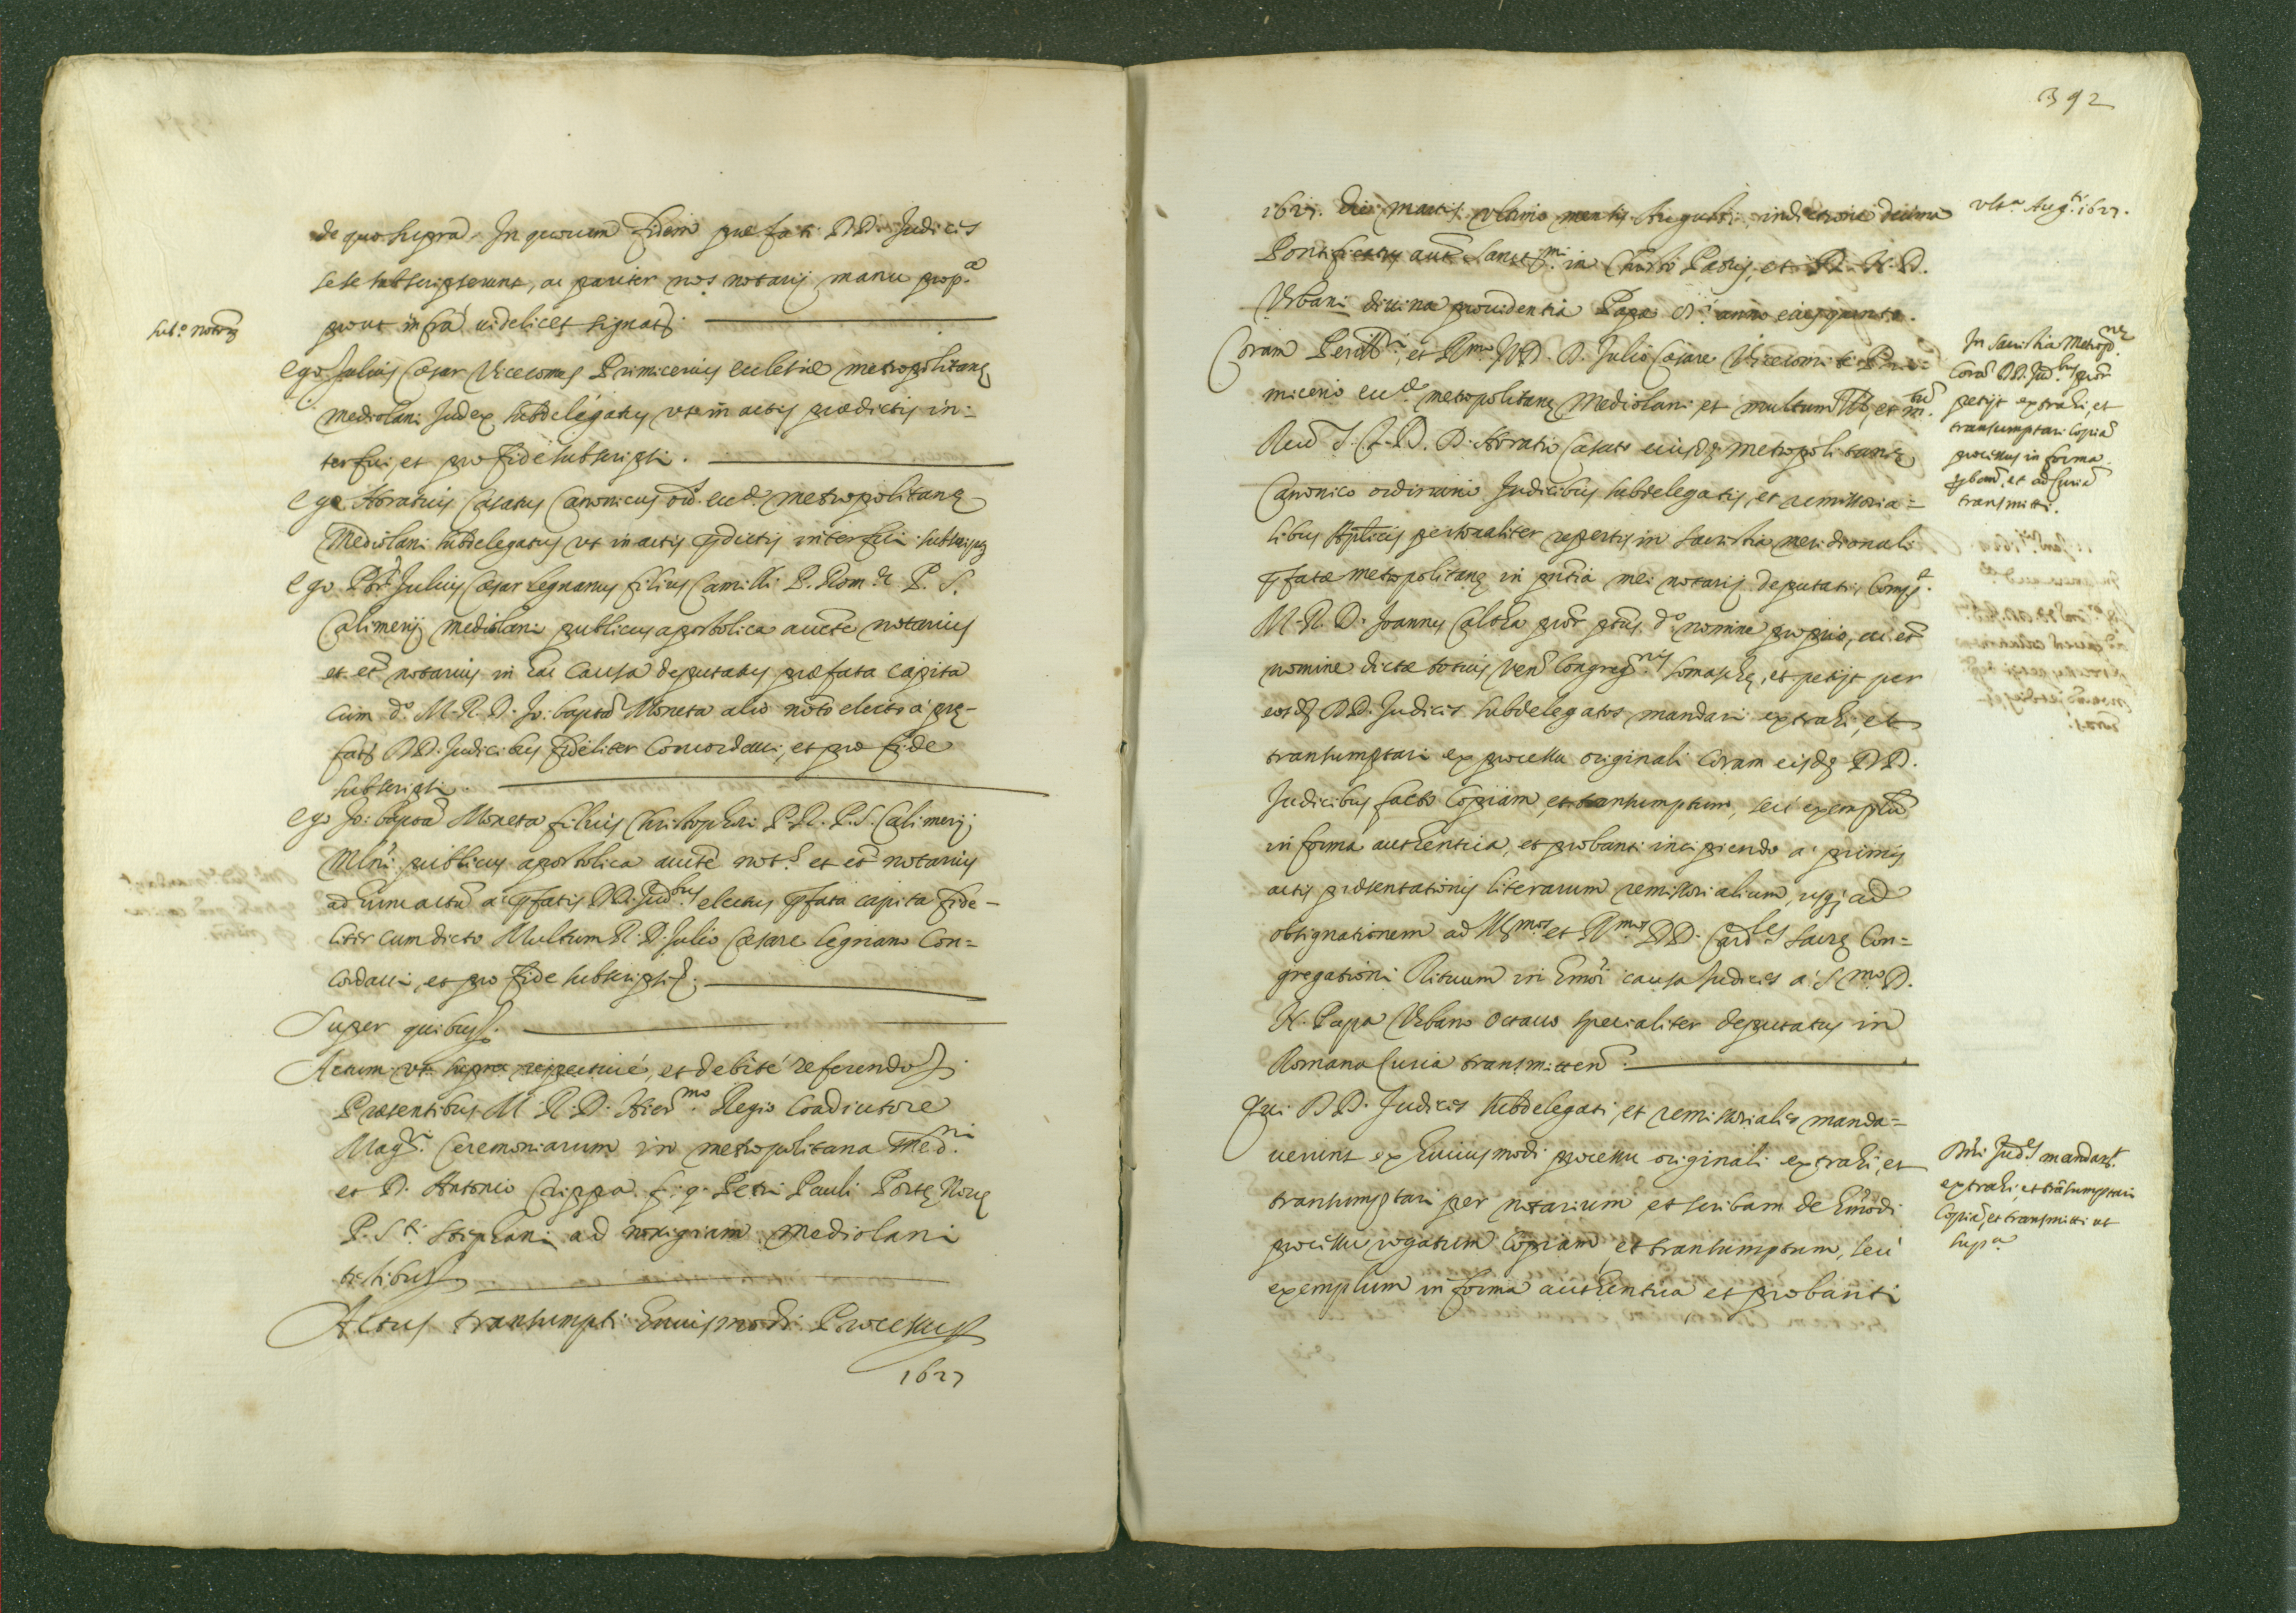 de quo supra. In quorum fidem præfati DD. Judices
sese subscripserunt, ac pariter nos notarij manu prop.a
prout infrà videlicet signat.
Sub.o notar.
Ego Julius Cæsar Vicecomes Primicerius ecclesiæ metropolitanę
Mediolani Judex subdelegatus ut in actis prædictis in=
terfui et pro fide subscripsi.
Ego Horatius Casatus Canonicus ord. eccl. metropolitanę
Mediolani subdelegatus ut in actis pdictis interfui subscripsi
Ego Pbr Julius Cæsar Legnanus filius Camilli P. Rom. P. S.
Calimerij Mediolani publicus apostolica aucte notarius
et et notarius in hac causa deputatus præfata capita
cum d.o M. R. D. Jo: bapta Moneta alio noto electo à prę-
fatis DD. Judicibus fideliter concordavi, et pro fide
subscripsi.
Ego Jo: bapta Moneta filius Christophori P. R. P. S. Calimerij
Mlni publicus apostolica aucte not.s et et notarius
ad hunc actu a pfatis DD. Jud.bus electus pfata capita fide-
liter cum dicto Multum R. D. Julio Cæsare Legnano con=
cordavi, et pro fide subscripsi.
Super quibus.
Actum ut supra respective, et debite referendo
Præsentibus M. R. D. Hier.mo Regio Coadiutore
Mag.ri Ceremoniarum in metropolitana Med.ni
et D. Antonio Crippa f. q. Petri Pauli Portę Novę
P. S.ti Stephani ad nosigiam Mediolani
testibus
Actus transumpti huiusmodi Processus
1627
392
1627. Die martis ultimo mensis Augusti indictione decima
Pontificatus aut Sanct.mi in Christo Patris, et D. N. D.
Urbani divina providentia Papæ 8.i anno eius quinto.
ult.a Aug.ti 1627.
Coram Perill.i, et R.mo J.V.D. D. Julio Cæsare Vicecomite Pri=
micerio eccl. metropolitanę Mediolani et multum Ill. et m.tum
Reud J. C. D. D. Horatio Casato eiusdę metropolitanę
Canonico ordinario Judicibus subdelegatis, et remissoria=
libus Aplicis personaliter repertis in sacristia meridionali
pfatæ metropolitanę in pntia mei notarij deputati, Comp.t
M. R. D. Joannes Calta pror ptus d.o nomine proprio, ac et
nomine dictæ totius Ven. Congreg.nis Somaschę, et petijt per
eosdę DD. Judices subdelegatos mandari extrahi, et
transumptari ex processu originali coram eisdę DD.
Judicibus facto copiam, et transumptum, seu exemplu
in forma authentica, et probanti incipiendo a primis
actis præsentationis literarum remissorialium, usq; ad
obsignationem ad Ill.mos et R.mos DD. Card.les sacrę Con=
gregationi Rituum in hmoi causa Judices a S.mo D.
N. Papa Urbano octavo specialiter deputatus in
Romana Curia transmitten.
In sacristia Metrop.nę
Cora DD. Jud.bus pror
petijt extrahi, et
transumptari copia
processus in forma
pbanti, et ad Curia
transmitti.
Qui DD. Judices subdelegati, et remissoriales manda=
verunt ex huiusmodi processu originali extrahi, et
transumptari per notarium et scribam de hmodi
processu rogatum copiam et transumptum, seu
exemplum in forma authentica et probanti
Dni Jud.es mandant
extrahi, et trasumptari
copia, et transmitti ut
sup.a